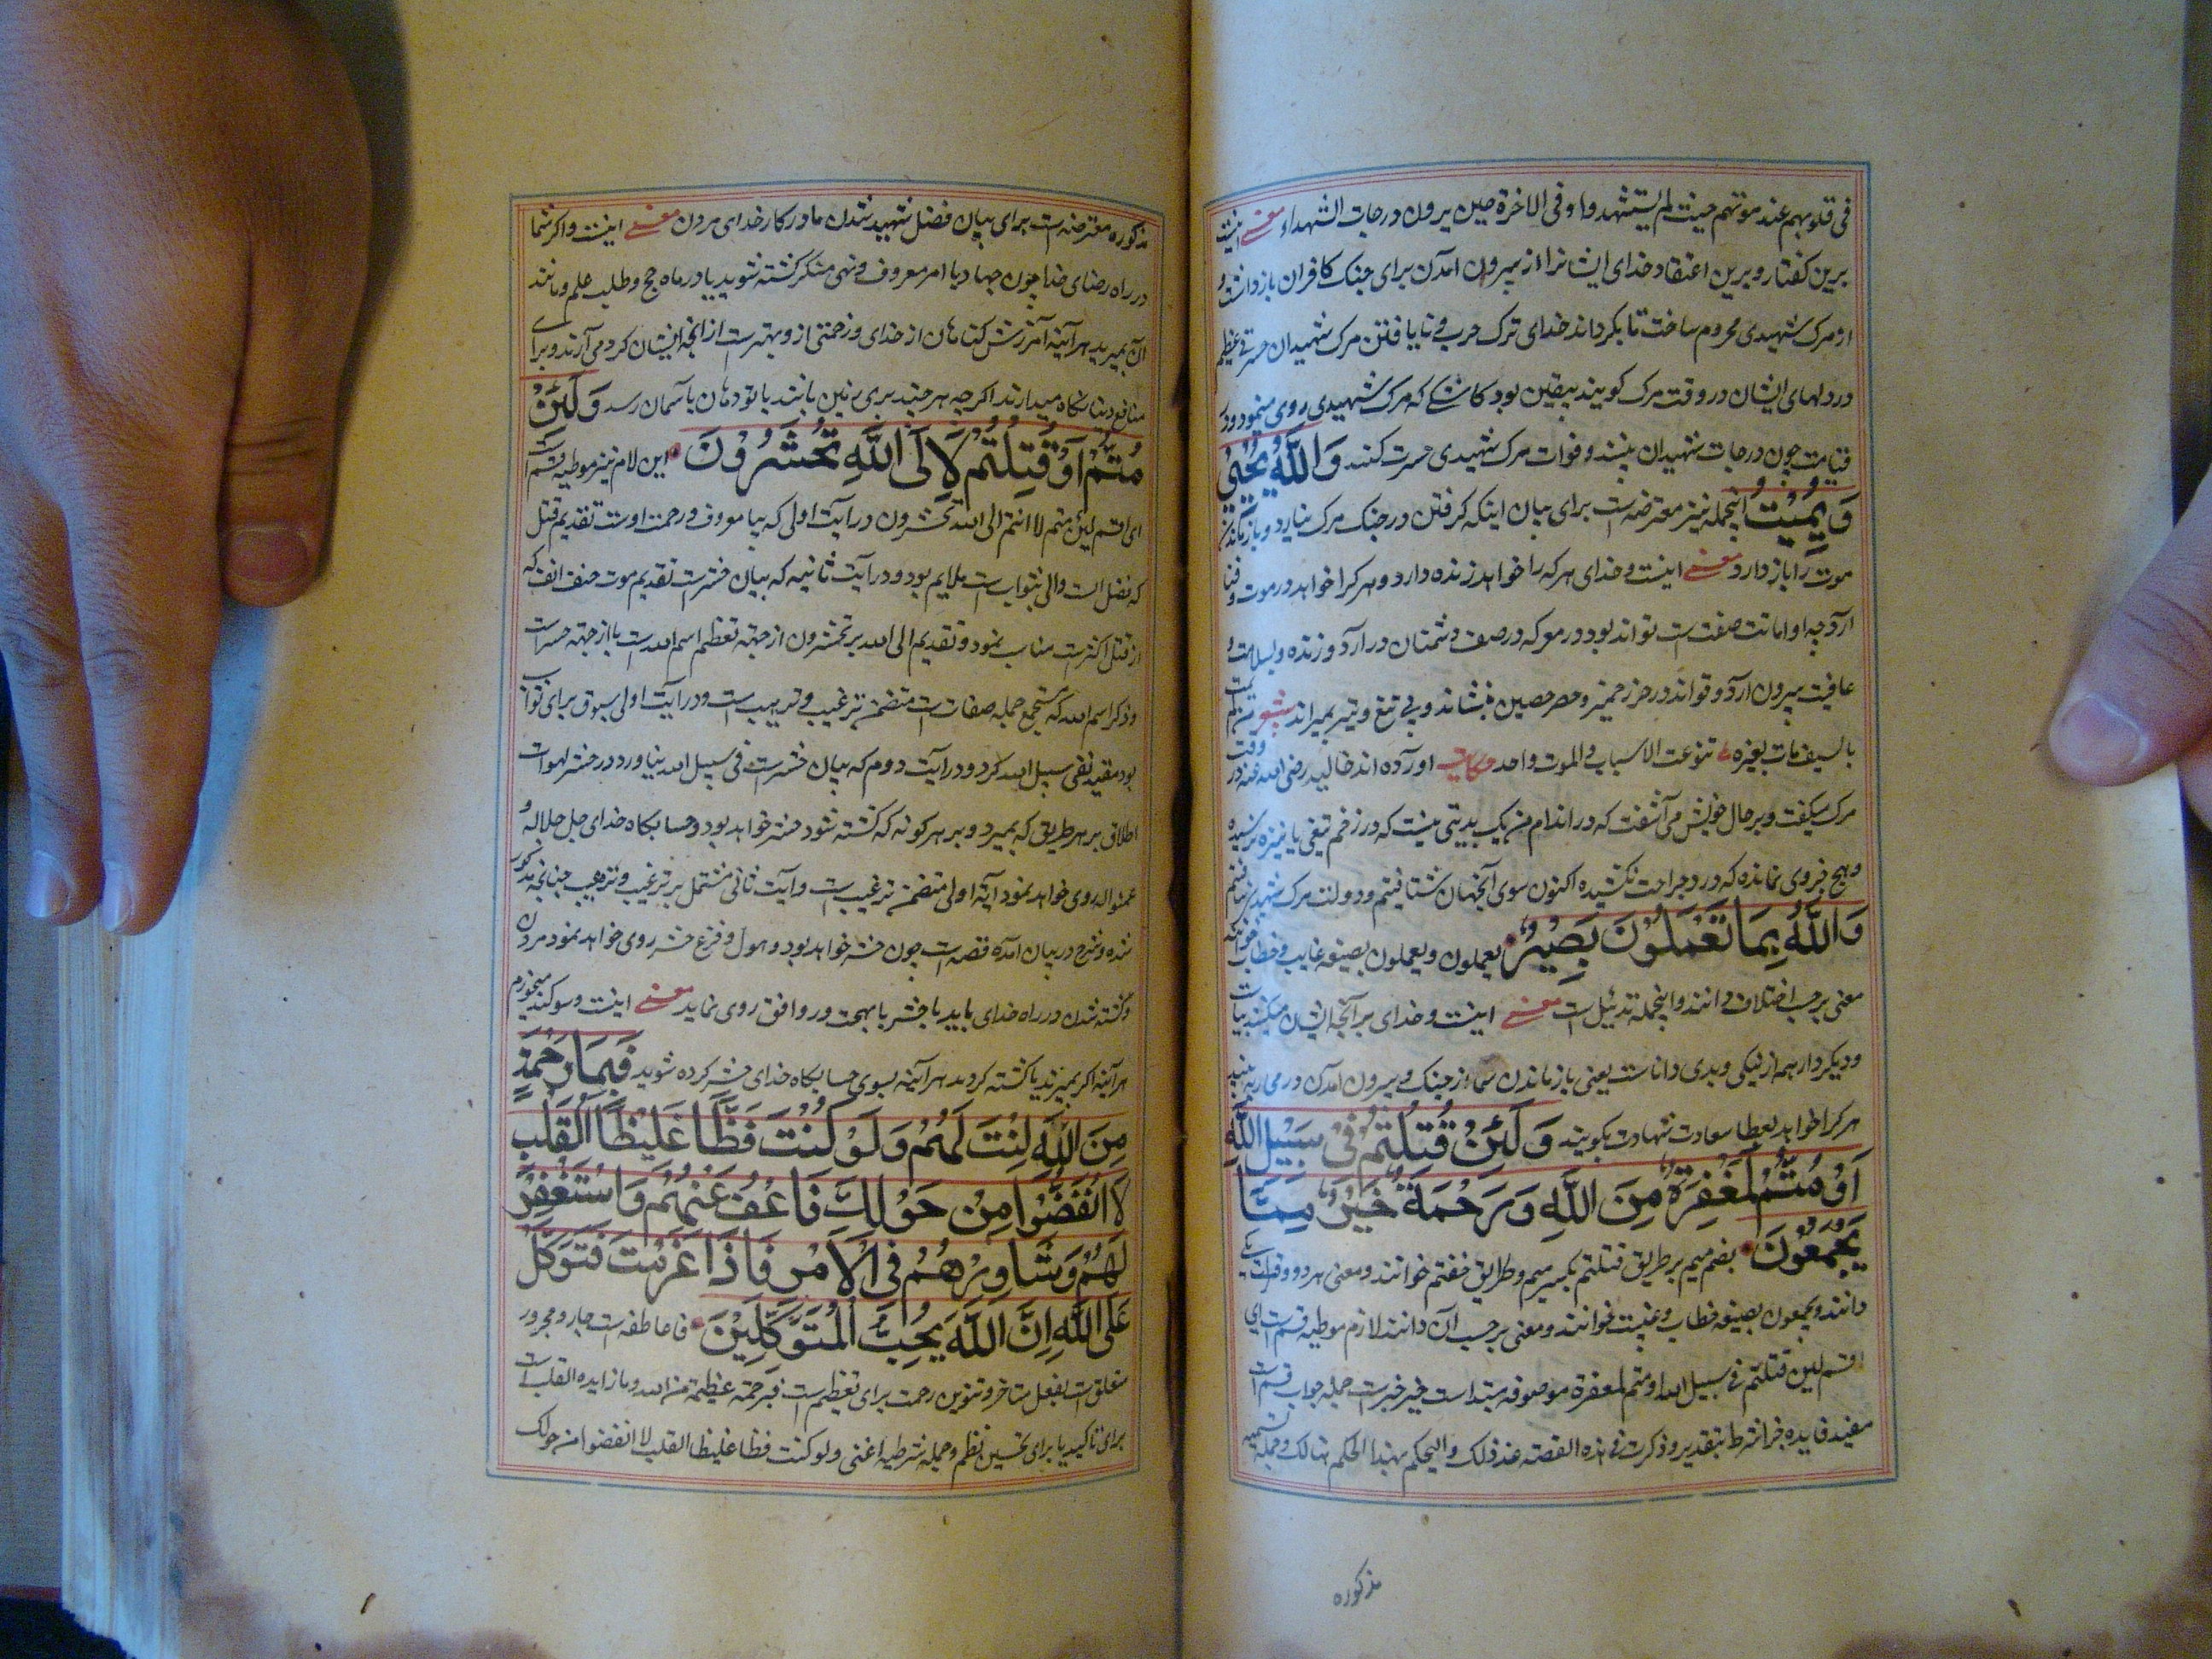 فی قلوبهم عند موتهم حیث لم یستشهدوا و فی الاخرة حین یرون درجات الشهداء معنی اینست
برین گفتار و برین اعتقاد خدای ایشانرا از بیرون آمدن برای جنک کافران بازداشت و
از مرک شهیدی محروم ساخت تا بکرداند خدای ترک حرب و نایافتن مرک شهیدان حسرتی عظیم
در دلهای ایشان در وقت مرک کویند بیقین بود کاشکے که مرک شهیدی روی مینمود و در
قیامت چون درجات شهیدان بینند و فوات مرک شهیدی حسرت کنند وَاللّٰهُ يُحْيٖ
وَيُمِيْتُ اینجمله نیز معترضه است برای بیان اینکه کرفتن در جنک مرک نیارد و بازماندن
موت را باز ندارد معنی اینست و خدای هر که را خواهد زنده دارد و هر کرا خواهد در موت و فنا
آرد چه او اماتت صفتست تواند بود در معرکه در صف دشمنان درآرد و زنده و بسلامت و
عافیت بیرون آرد و تواند در حرز حریز و حصن حصین بنشاند و بی تیغ و تیر بمیراند شعر
بالسیف مات بغیره تنوعت الاسباب و الموت واحد حکایت آورده اند خالد ولید رضی الله عنه در وقت
مرک میگفت و بر حال خویش می آشفت که در اندام من یک بدستی نیست که در زخم تیغی یا نیزه نرسیده
و هیچ جزوی نمانده که درد جراحت نکشیده اکنون سوی آنجهان شتافتیم و دولت مرک شهیدی نیافتم
وَاللّٰهُ بِمَا تَعْمَلُوْنَ بَصِيْرٌ یعملون و تعملون بصیغه غایب و خطاب خوانند
معنی بر حسب اختلاف دانند و اینجمله تذییل است معنی اینست و خدای بر آنچه ایشان میکنند بیناست
و دیگر دار همه از نیکی و بدی داناست یعنی بازماندن شما از جنک و بیرون آمدن در محاربه بیند
هر کرا خواهد بعطا سعادت شهادت بکویند وَلَئِنْ قُتِلْتُمْ فِيْ سَبِيْلِ اللّٰهِ
اَوْ مُتُّمْ لَمَغْفِرَةٌ مِنَ اللّٰهِ وَرَحْمَةٌ خَيْرٌ مِمَّا
يَجْمَعُوْنَ بضم میم بر طریق قتلتم بکسر میم و طریق خفتم خوانند و معنی هر دو قرات یکی
دانند و یجمعون بصیغه خطاب و غیبت خوانند و معنی بر حسب آن دانند لازم موطیه قسم است ای
اقسم لئن قتلتم فی سبیل الله او متم لمغفرة موصوفه مبتداست خیر خبرست جمله جواب قسم است
مفید فایده جزا شرط بتقدیر و ذکرت فی هذه القصة عند ذلک و الیحکم بهذا الحکم هنالک و جمله قسمیه
مذکوره
مذکوره معترضه است برای بیان فضل شهید شدن ما در کار خدای مردن معنی اینست و اکر شما
در راه رضای خدا چون جهاد یا امر معروف و نهی منکر کشته شوید یا در ماه حج و طلب علم و مانند
آن بمیرید هرآینه آمرزش کناهان از خدای و رحمتی از و بهترست از آنچه ایشان کرد می آرند و برای
منافع دنیا نکاه میدارند اکرچه هر چند بری زمین باشد یا تودهای بآسمان رسد وَلَئِنْ
مُتُّمْ اَوْ قُتِلْتُمْ لَاِلَى اللّٰهِ تُحْشَرُوْنَ این لام نیز موطیه قسم است
ای اقسم لئن متم لا انتم الی الله تحشرون در آیت اولی که بیان عفو و رحمت اوست تقدیم قتل
که فضل است والی بثواب است ملایم بود و در آیت ثانیه که بیان حشرست تقدیم موت حتف انف که
از قتل اکثرست مناسب نمود و تقدیم الی الله بر تحشرون از جهة تعظیم اسم الله است یا از جهة حسرات
و ذکر اسم الله که مستجمع جمله صفات است متضمن ترغیب و ترهیب است و در آیت اولی سوق برای ثواب
بود مقید بفی سبیل الله کرد و در آیت دوم که بیان حشرست فی سبیل الله نیاورد و در حشر لهو است
اطلاق بر هر طریق که بمیرد و بر هر کونه که کشته شود حشر خواهد بود و حسابکاه خدای جل جلاله و
عم نواله روی خواهد نمود آیه اولی متضمن ترغیب است و آیت ثانی مشتمل بر ترغیب و ترهیب چنانچه مذکور
شده و شرح در بیان آمده قصه است چون حشر خواهد بود و هول و فزع حشر روی خواهد نمود مردن
و کشته شدن در راه خدای باید تا حشر با بهجت و رواق روی نماید معنی اینست و سوکند میخورم
هرآینه اکر بمیرید یا کشته کردید هرآینه بسوی حسابکاه خدای حشر کرده شوید فَبِمَا رَحْمَةٍ
مِنَ اللّٰهِ لِنْتَ لَهُمْ وَلَوْ كُنْتَ فَظًّا غَلِيْظَ الْقَلْبِ
لَا انْفَضُّوْا مِنْ حَوْلِكَ فَاعْفُ عَنْهُمْ وَاسْتَغْفِرْ
لَهُمْ وَشَاوِرْهُمْ فِى الْاَمْرِ فَاِذَا عَزَمْتَ فَتَوَكَّلْ
عَلَى اللّٰهِ اِنَّ اللّٰهَ يُحِبُّ الْمُتَوَكِّلِيْنَ فا عاطفه است جار و مجرور
متعلق است بفعل متاخر و تنوین رحمت برای تعظیم است فبرحمة عظیمة من الله و ما زایده القلب است
برای تاکید یا برای تحسین نظم و جمله شرطیه اعنی و لو کنت فظا غلیظ القلب لا انفضوا من حولک